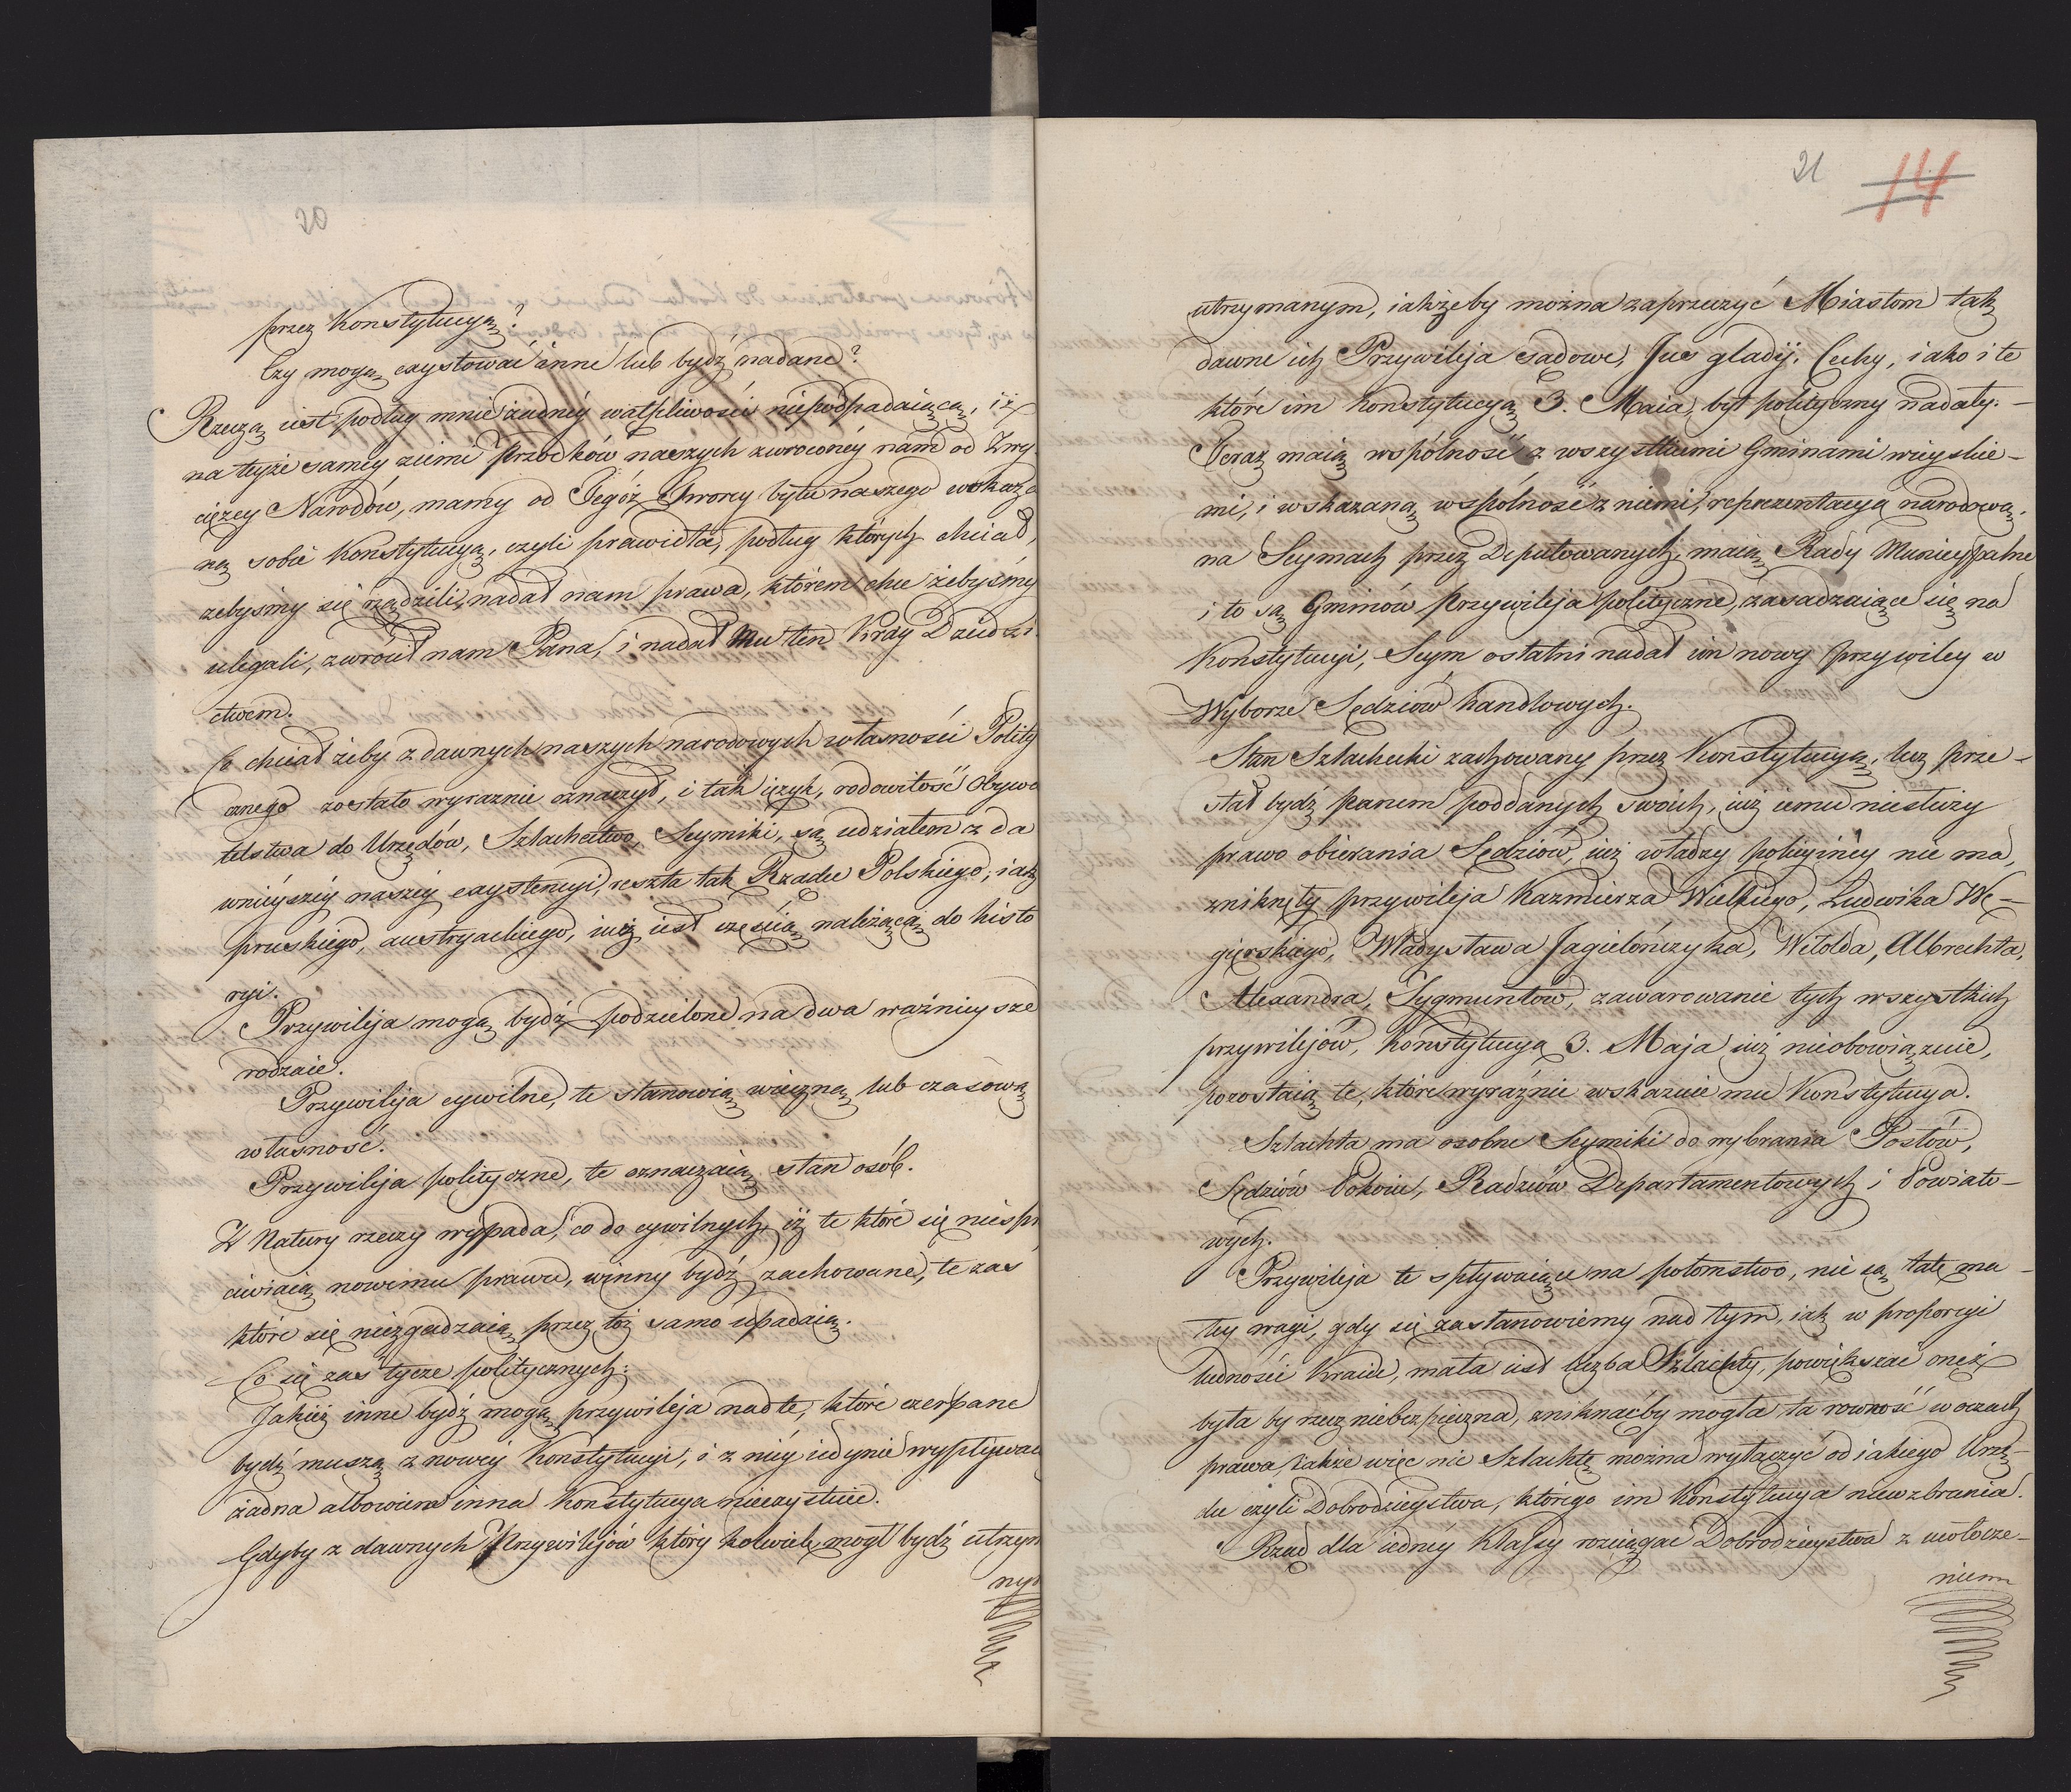 20
przez Konstytucyą?
Czy mogą exystować inne lub bydź nadane?
Rzeczą iest podług mnie żadnéy wątpliwości niepodpadaiącą, iż
na teyże saméy ziemi Przodków naszych zwroconéy nam od Zwy
ciężcy Narodów, mamy od Tegóż Twórcy bytu naszego wskaza
ną sobie Konstytucyą, czyli prawidła, podług których chciał,
żebyśmy się rządzili, nadał nam prawa, którem chce żebyśmy
ulegali, zwrócił nam Pana, i nadał Mu ten Kray Dziedzi
ctwem.
Co chciał żeby z dawnych naszych narodowych własności Polity
cznego zostało wyraznie oznaczył, i tak ięzyk, rodowitość Obywa
telstwa do Urzędów, Szlachectwo, Seymiki, są udziałem z da
wnieyszéy naszéy exystencyi, reszta tak Rządu Polskiego, iak
pruskiego, austryackiego, iuż iest częścią należącą do histo
ryi.
Przywilija mogą bydź podzielone na dwa ważnieysze
rodzaie.
Przywilija cywilne, te stanowią wieczną, lub czasową
własność.
Przywilija polityczne, te oznaczaią stan osób.
Z Natury rzeczy wypada, co do cywilnych, iż te które się niesprz
ciwiaią nowemu prawu, winny bydź zachowane, te zas
które się niezgadzaią, przez tóż samo upadaią.
Co się zas tycze politycznych:
Jakież inne bydź mogą przywileja nad te, które czerpane
bydź muszą z nowéy Konstytucyi, i z niéy iedynie wypływac
żadna albowiem inna Konstytucya nieexystuie.
Gdyby z dawnych Przywilejów który kolwiek mogł bydź utrzym
nym
21
14
utrzymanym, iakżeby można zaprzeczyć Miastom tak
dawne ich Przywileja sądowe, Jus gladij. Cechy, iako i te
które im Konstytucya 3. Maia, byt polityczny nadały.-
Teraz maią wspólność z wszystkiemi Gminami wieyskie-
mi, i wskazaną wspólność z niemi, reprezentacyą narodową,
na Seymach przez Deputowanych, maią Rady Municypalne
i to są Gminów Przywileja polityczne, zasadzaiące się na
Konstytucyi, Seym ostatni nadał im nowy przywiley w
Wyborze Sędziów handlowych.
Stan Szlachecki zachowany przez Konstytucyą, lecz prze-
stał bydź panem poddanych swoich, iuż iemu niesłuży
prawo obierania Sędziów, iuż władzy policyinéy nie ma,
zniknęły przywileja Kazmierza Wielkiego, Ludwika Wę-
gierskiego, Władysława Jagielończyka, Witolda, Albrechta,
Alexandra, Zygmuntów, zawarowanie tych wszystkich
przywilejów, Konstytucyą 3. Maja iuż nieobowiązuie,
pozostaią te, które wyraźnie wskazuie mu Konstytucya.
Szlachta ma osobne Seymiki do wybrania Posłów,
Sędziów Pokoiu, Radzców Departamentowych i Powiato-
wych.
Przywileja te spływaiące na potomstwo, nie są tak ma-
łey wagi, gdy się zastanowiemy nad tym, iak w proporcyi
ludności Kraiu, mała iest liczba Szlachty, powiększac oneż
była by rzecz niebezpieczna, zniknąćby mogła, ta rowność w oczach
prawa, także więc nie Szlachtę można wyłączyć od iakiego Urzę-
du czyli Dobrodzieystwa, którego im Konstytucya niewzbrania.
Rząd dla iednéy Klassy rozciągac Dobrodzieystwa z uwłocze-
niem